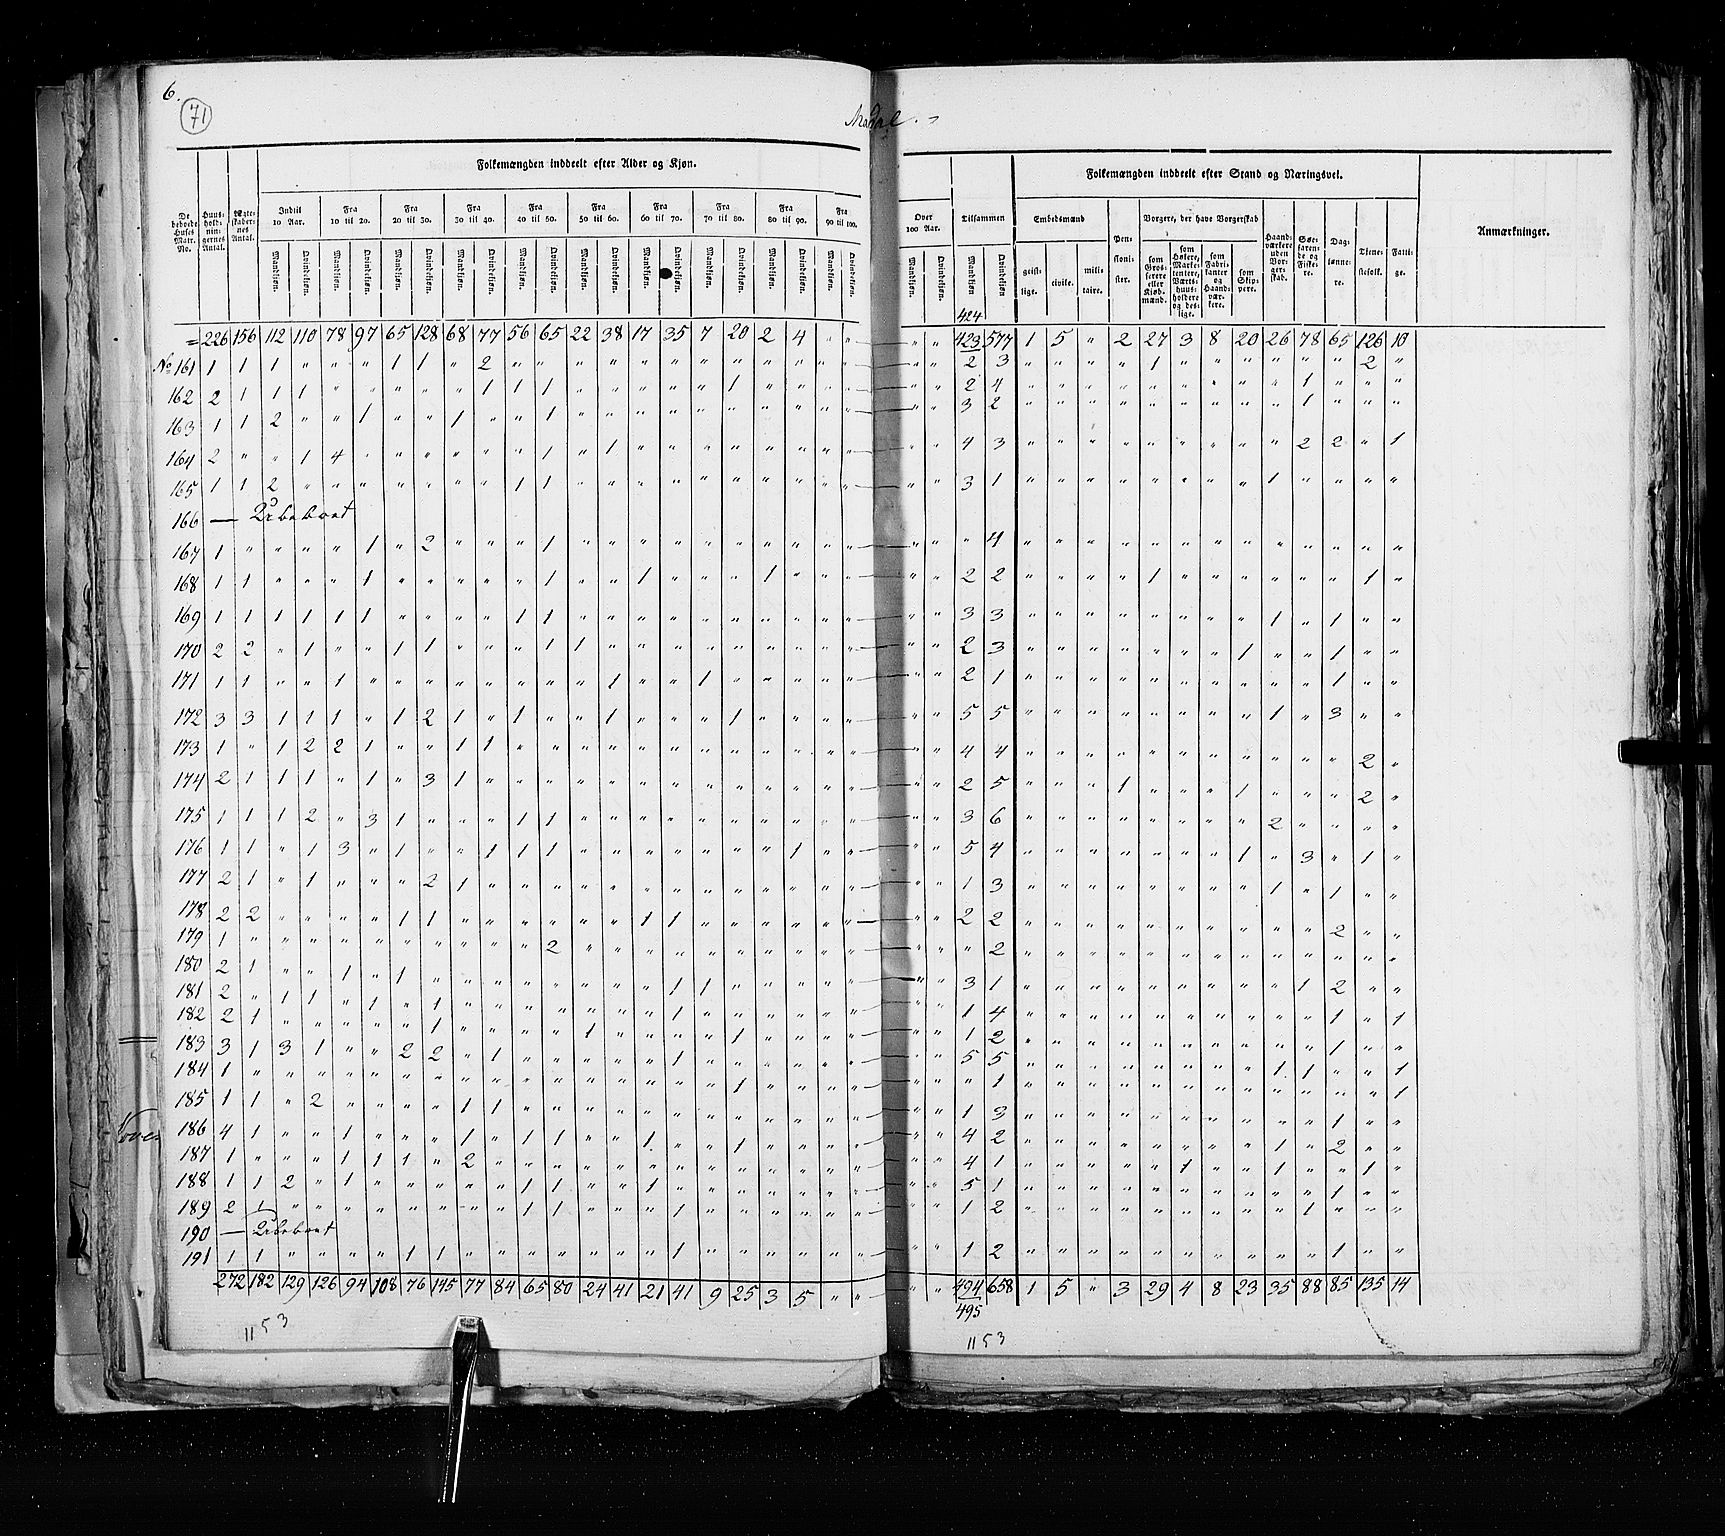 6.
71
Mandal.
Folkemængden inddeelt efter Alder og Kjøn.
Folkemængden inddeelt efter Stand og Næringsvei.
De beboede Huses Matr. No.
Huus-hold-nin-gernes Antal.
Ægte-skaber-nes Antal.
Indtil 10 Aar.
Fra 10 til 20.
Fra 20 til 30.
Fra 30 til 40.
Fra 40 til 50.
Fra 50 til 60.
Fra 60 til 70.
Fra 70 til 80.
Fra 80 til 90.
Fra 90 til 100.
Over 100 Aar.
Tilsammen
Mandkjøn. Qvindekjøn.
Embedsmænd
geist-lige. civile. mili-taire.
Pen-sioni-ster.
Borgere, der have Borgerskab
som Gros-serere eller Kjøb-mænd.
som Høkere, Marke-tentere, Værts-huus-holdere og des-lige.
som Fabri-kanter og Haand-vær-kere.
som Skip-pere.
Haand-værkere uden Bor-ger-skab.
Søe-faren-de og Fiske-re.
Dag-lønne-re.
Tjene-stefolk.
Fatti-ge.
Anmærkninger.
424
= 226 156 112 110 78 97 65 128 68 77 56 65 22 38 17 35 7 20 2 4 " " " " 423 577 1 5 " 2 27 3 8 20 26 78 65 126 10
No 161 1 1 1 " " " 1 1 " 2 " " " " " " " " " " " " " " 2 3 " " " " 1 " " " " " " 2 "
162 2 1 1 1 " " " " " 1 1 1 " " " " " 1 " " " " " " 2 4 " " " " " " " " " 1 " " "
163 1 1 2 " " 1 " " 1 " " 1 " " " " " " " " " " " " 3 2 " " " " " " " " " 1 " " "
164 2 " " 1 4 " " " " " " 1 " 1 " " " " " " " " " " 4 3 " " " " " " " " " 2 2 " 1
165 1 1 2 " " " " " " " 1 1 " " " " " " " " " " " " 3 1 " " " " " " " " 1 " " " "
166 — Ubeboet
167 1 " " " " 1 " 2 " " " 1 " " " " " " " " " " " " " 4 " " " " " " " " " " " " "
168 1 1 " " " 1 " " " " " 1 " " 1 " " " 1 " " " " " 2 2 " " " " 1 " " " " " " 1 "
169 1 1 1 1 1 1 " " " " 1 1 " " " " " " " " " " " " 3 3 " " " " " " " " 1 " 1 " "
170 2 2 " 1 " " 1 1 " " " 1 1 " " " " " " " " " " " 2 3 " " " " " " " 1 " " 1 " "
171 1 1 " " 1 " " " " " " " " 1 " " 1 " " " " " " " 2 1 " " " " " " " " " " 1 " "
172 3 3 1 1 1 " 1 2 1 " 1 " " 1 " " " 1 " " " " " " 5 5 " " " " " " " " 1 " 3 " "
173 1 " 1 2 2 1 " " 1 1 " " " " " " " " " " " " " " 4 4 " " " " " " " " " " " 2 "
174 2 1 1 1 " 1 " 3 1 " " " " " " " " " " " " " " " 2 5 " " " 1 " " " 1 " " " 2 "
175 1 1 1 2 " 3 1 " " " 1 1 " " " " " " " " " " " " 3 6 " " " " " " " " 2 " " " "
176 1 1 " 1 3 " 1 " " 1 1 1 " " " " " " " 1 " " " " 5 4 " " " " " " " 1 " 3 " 1 "
177 2 1 " 1 " " " 2 1 " " " " " " " " " " " " " " " 1 3 " " " " " " " " 1 " 1 " "
178 2 2 " " " " 1 1 " " " " " " 1 1 " " " " " " " " 2 2 " " " " " " " " " " 2 " "
179 1 " " " " " " " " " " 2 " " " " " " " " " " " " " 2 " " " " " " " " " " " " "
180 2 1 " " 1 " 1 " " " " " " " " 1 1 " " " " " " " 3 1 " " " " " " " " " 1 2 " "
181 2 " 1 1 " 1 " 1 " " " " " " " 1 " " " " " " " " 1 4 " " " " " " " " " " 1 " 1
182 2 1 " " " " " 1 " " " " 1 " " " " 1 " " " " " " 1 2 " " " " " " " " " " 1 " "
183 3 1 3 1 " " 2 2 " 1 " " " " " 1 " " " " " " " " 5 5 " " " " " " " " 1 1 " " 1
184 1 " " " " " " " " " " " " " " " " 1 " " " " " " " 1 " " " " " " " " " " " " 1
185 1 1 " 2 " " " " 1 1 " " " " " " " " " " " " " " 1 3 " " " " " " " " " " 1 " "
186 4 1 " " 1 " " " 1 " 1 1 " " 1 " " 1 " " " " " " 4 2 " " " " " " " " 1 " 2 " "
187 1 " " " 1 1 1 " 2 " " " " " " " " " " " " " " " 4 1 " " " " " 1 " " 1 " " 1 "
188 1 1 2 " 1 " " " " " 1 1 " " 1 " " " " " " " " " 5 1 " " " " " " " " " " 1 " "
189 2 1 " " " " " " " " 1 1 " " " 1 " " " " " " " " 1 2 " " " " " " " " " 1 " " "
190 — Ubeboet
191 1 1 " " " " 1 1 " " " " " " " 1 " " " " " " " " 1 2 " " " " " " " " " " 1 " "
272 182 129 126 94 108 76 145 77 84 65 80 24 41 21 41 9 25 3 5 " " " " 494 658 1 5 " 3 29 4 8 23 35 88 85 135 14
495
1153
1153